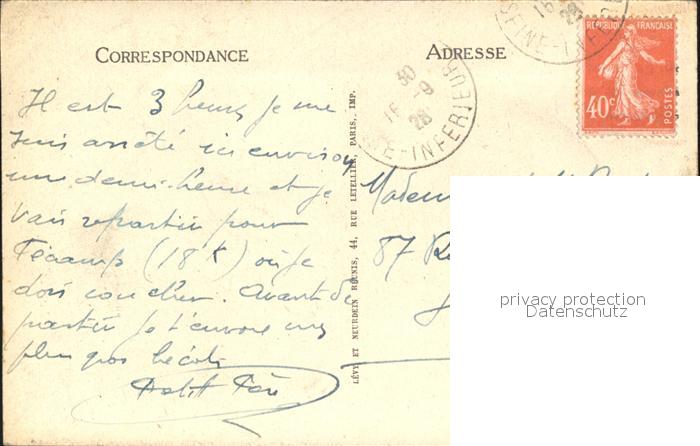 CORRESPONDANCE
ADRESSE
Il est 3 heures je me
suis arrêté ici environ
une demi-heure et je
vais repartir pour
Fécamp (18 K) où je
dois coucher. Avant de
partir je t'envoie mes
plus gros bécots
Petit Père
LÉVY ET NEURDEIN RÉUNIS, 44, RUE LETELLIER, PARIS, IMP.
16
30
-9
28
INFERIEURE
16
28
SEINE-INFE
REPUBLIQUE FRANÇAISE
40c
POSTES
87
privacy protection
Datenschutz